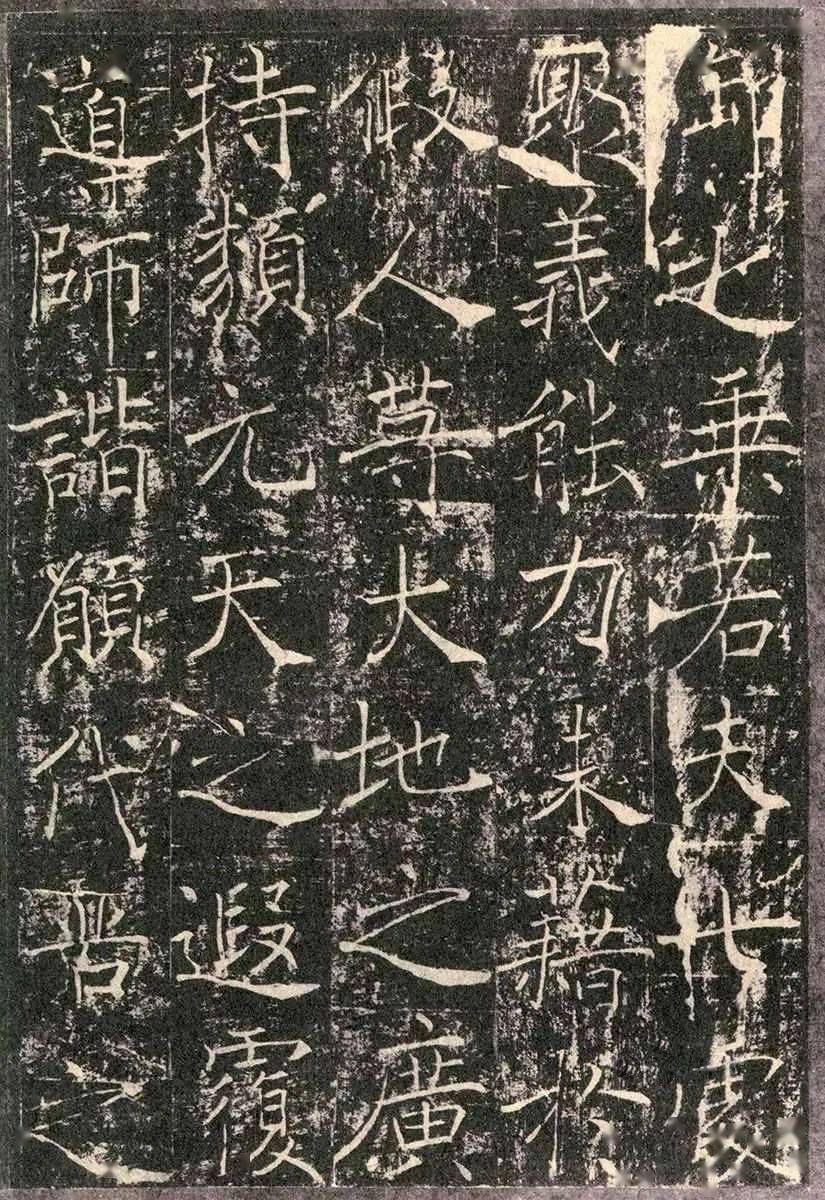 之乘若夫處
聚義能力未藉於
假人尊大地之廣
持類元天之遐覆
導師諧願代晉之